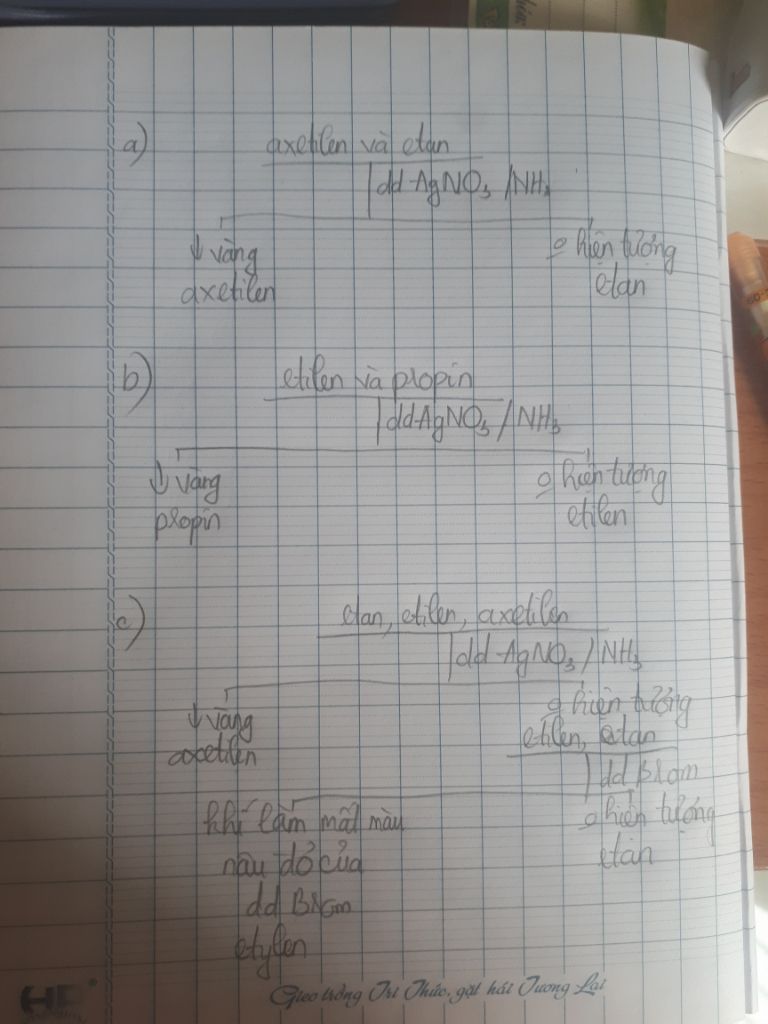 a) axetilen và etan
dd AgNO3 /NH3
↓ vàng
axetilen
o hiện tượng
etan
b) etilen và propin
dd AgNO3 / NH3
↓ vàng
propin
o hiện tượng
etilen
c) etan, etilen, axetilen
dd AgNO3 / NH3
↓ vàng
axetilen
o hiện tượng
etilen, etan
dd Brom
khí làm mất màu
nâu đỏ của
dd Brom
etylen
o hiện tượng
etan
Gieo trồng Tri Thức, gặt hái Tương Lai